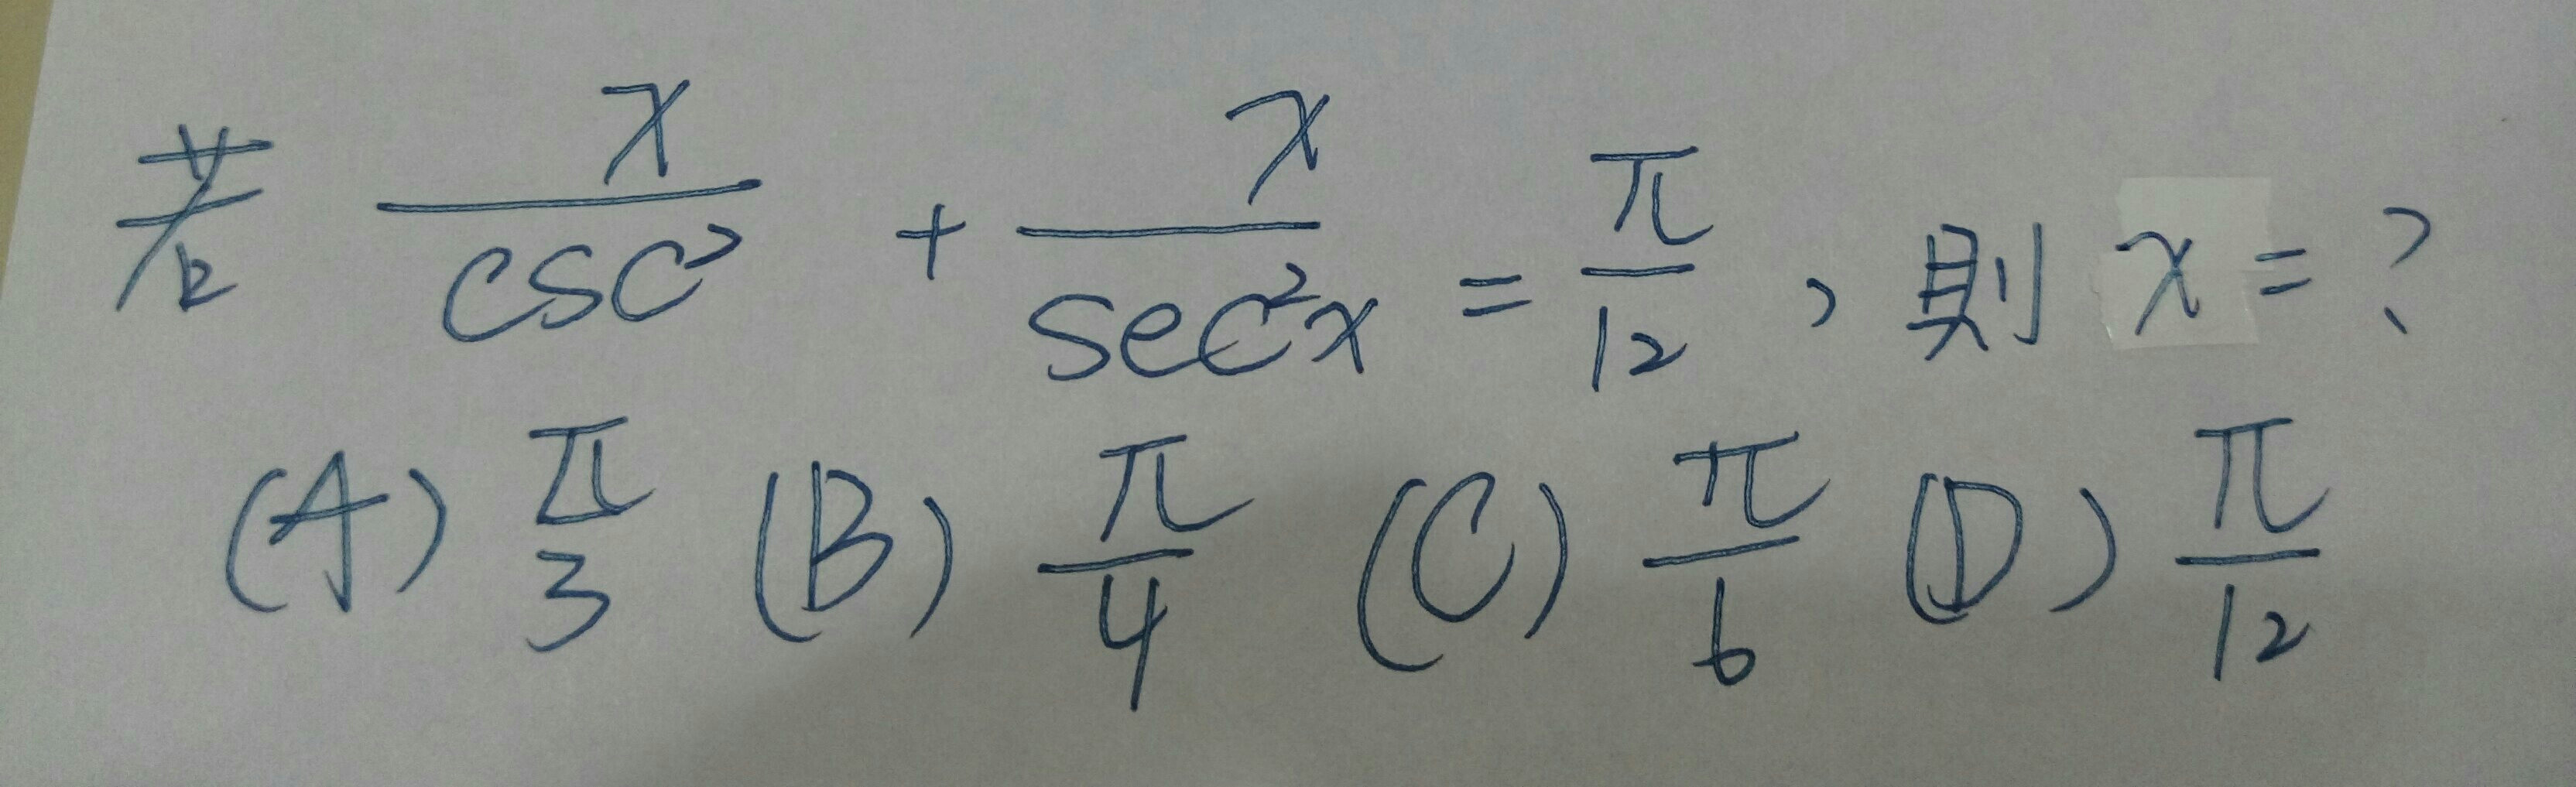 若 x/csc² + x/sec²x = π/12，則 x = ?
(A) π/3 (B) π/4 (C) π/6 (D) π/12